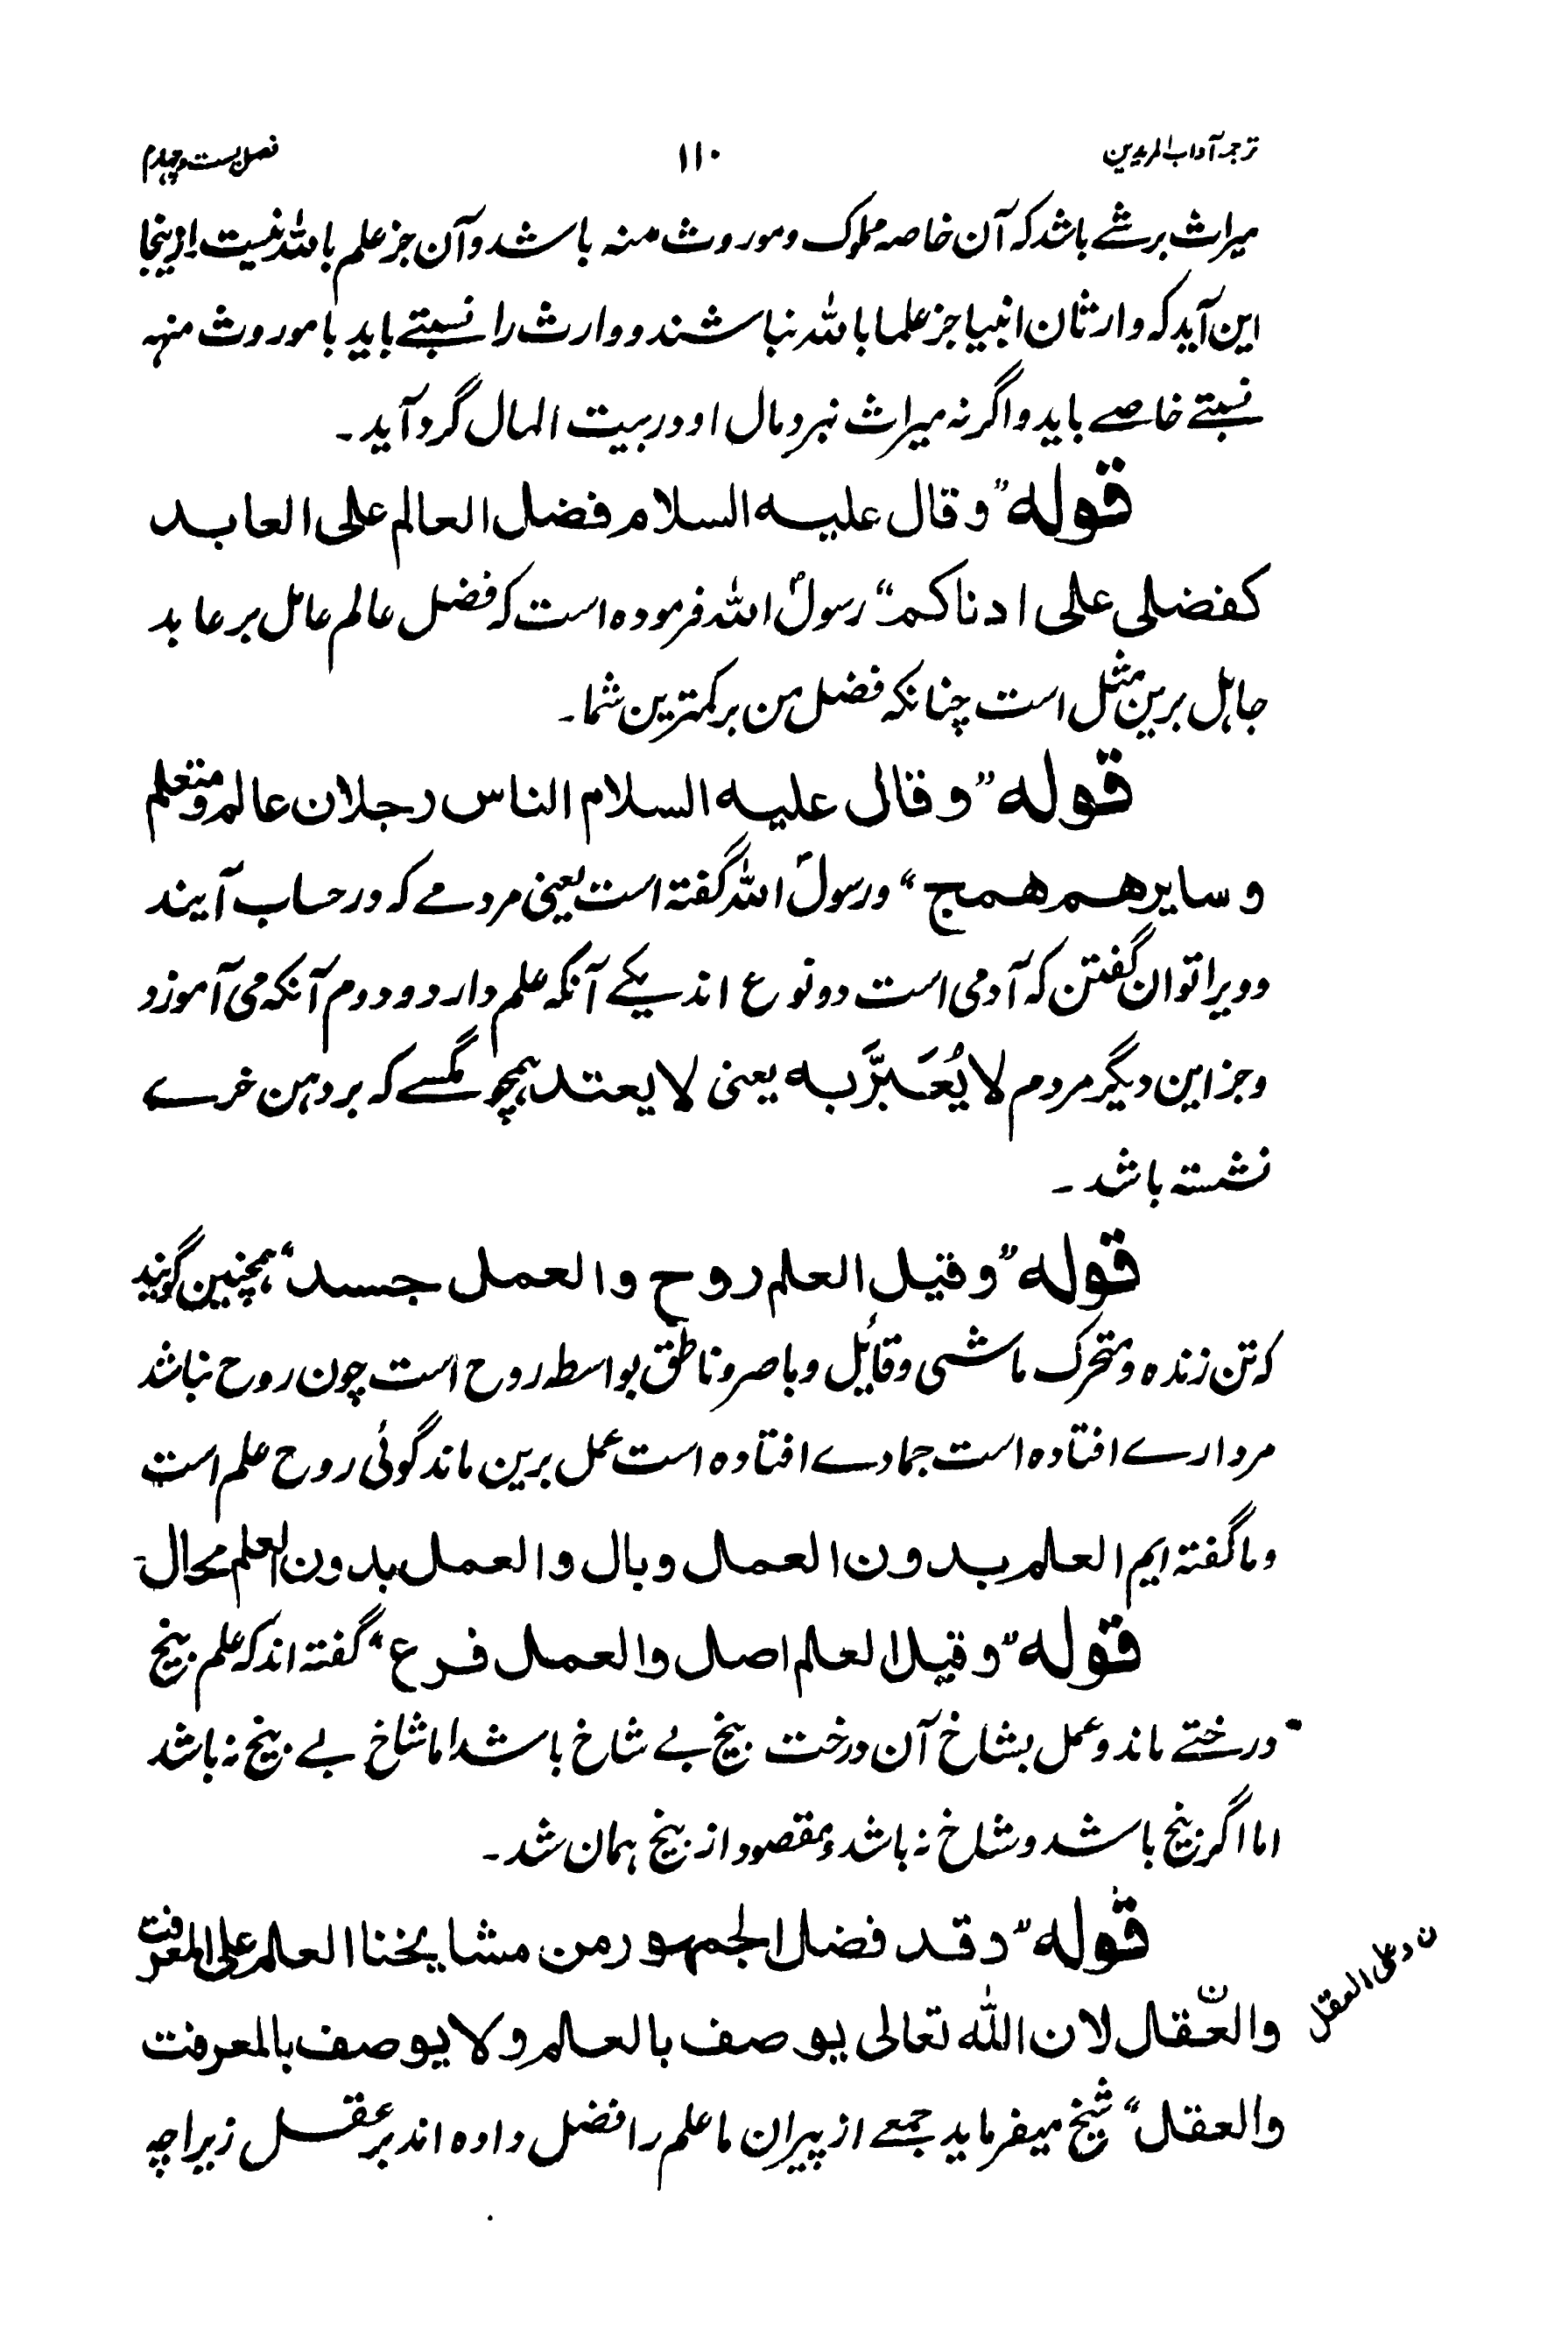 ترجمہ آداب المریدین ۱۱۰ فصل بست و چہارم
میراث برشے باشد کہ آن خاصہ مملوک و موروث منہ باشد و آن جز علم باللہ نیست ازینجا
این آید کہ وارثان انبیا جز علما باللہ نباشند و وارث را نسبتے باید با موروث منہہ
نسبتے خاصے باید و اگر نہ میراث نبرد مال او در بیت المال گرد آید۔
قولہ ”و قال علیہ السلام فضل العالم علی العابد
کفضلی علی ادناکم“ رسولؐ اللہ فرمودہ است کہ فضل عالم عامل بر عابد
جاہل برین مثل است چنانکہ فضل من بر کمترین شما۔
قولہ ”و قال علیہ السلام الناس رجلان عالم و متعلم
و سایرھم ھمج“ و رسولؐ اللہ گفتہ است یعنی مردمے کہ در حساب آیند
و ویرا توان گفتن کہ آدمی است دو نوع اند یکے آنکہ علم دارد و دوم آنکہ می آموزد
و جز این دیگر مردم لا یُعَبَرَّ بہ یعنی لا یعتد ہمچو مگسے کہ بر دہن خرے
نشستہ باشد۔
قولہ ”و قیل العلم روح والعمل جسد“ ہمچنین گویند
کہ تن زندہ و متحرک ماشی و قایٔل و باصر و ناطق بواسطہ روح است چون روح نباشد
مردارے افتادہ است جمادے افتادہ است عمل برین ماند گوئی روح علم است
و ما گفتہ ایم العلم بدون العمل وبال والعمل بدون العلم محال۔
قولہ ”و قیل العلم اصل والعمل فرع“ گفتہ اند کہ علم بیخ
درختے ماند و عمل بشاخ آن درخت بیخ بے شاخ باشد اما شاخ بے بیخ نہ باشد
اما اگر بیخ باشد و شاخ نہ باشد و مقصود از بیخ ہمان شد۔
قولہ ”و قد فضل الجمہور من مشایخنا العلم علی المعرفت
والعقلن لان اللہ تعالی یوصف بالعلم و لا یوصف بالمعرفت
ن و علی العقل
والعقل“ شیخ میفرماید جمعے از پیران ما علم را فضل دادہ اند بر عقل زیرا چہ